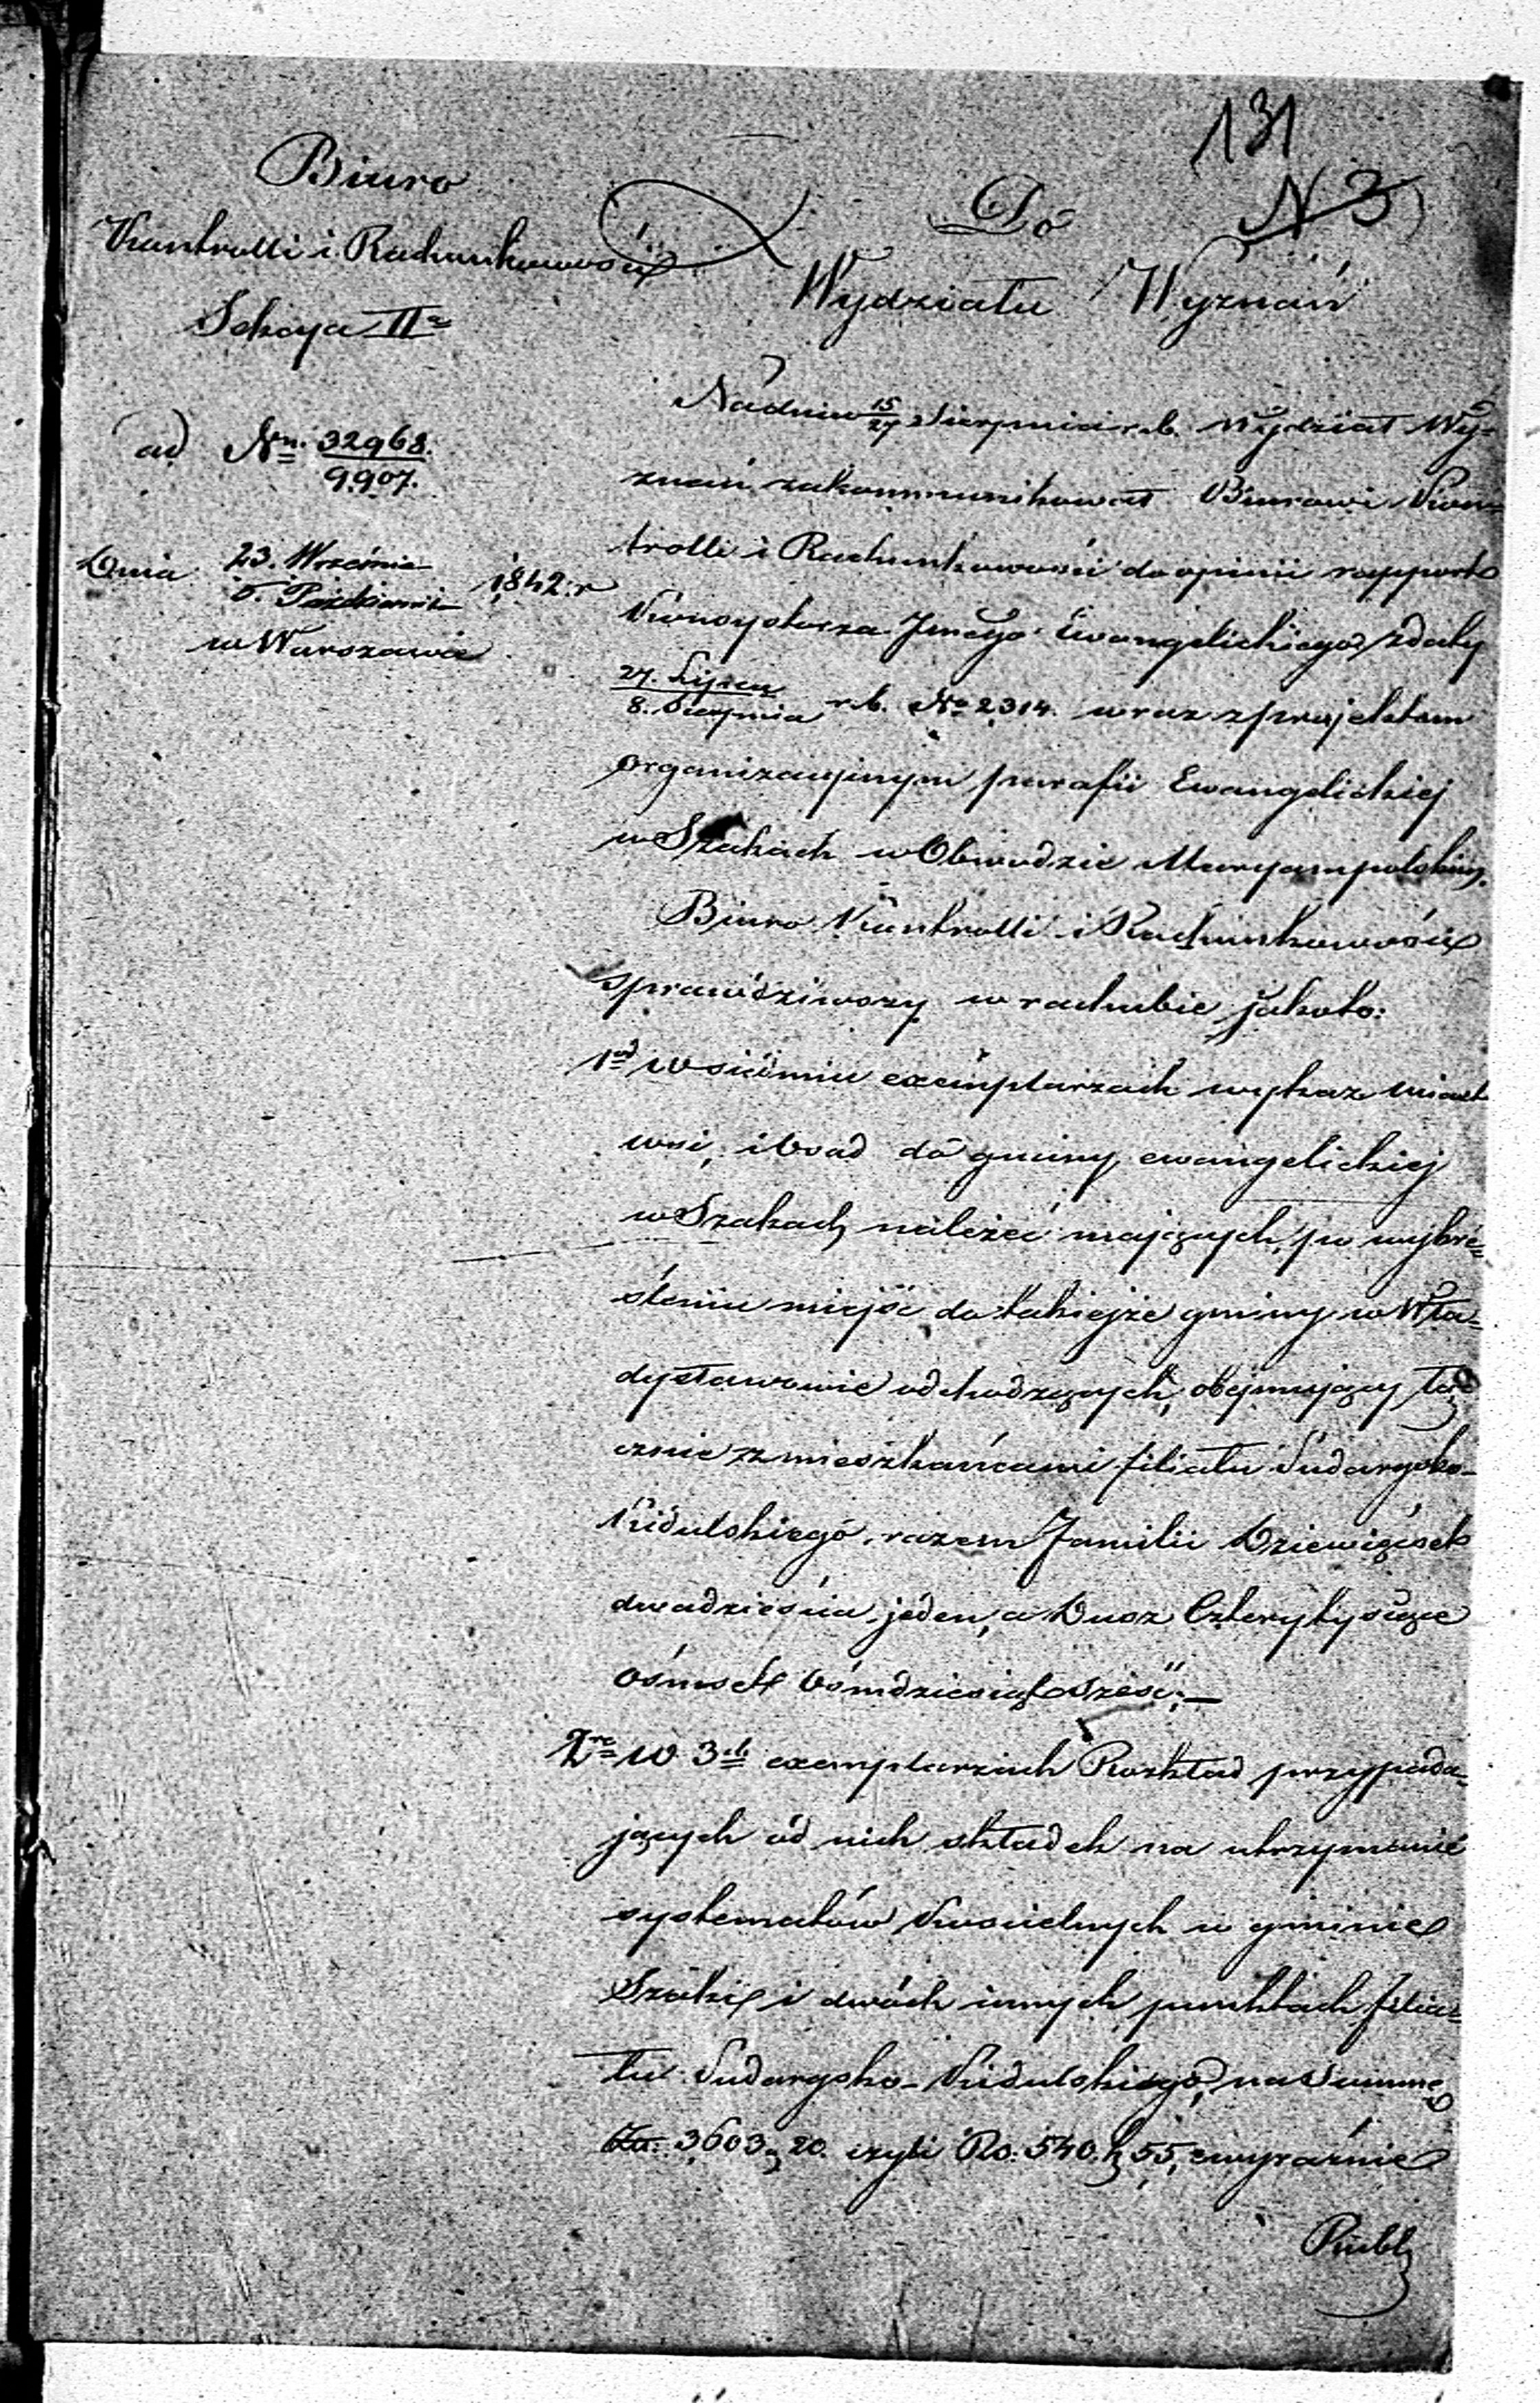 131
N 3
Biuro
Kontrolli i Rachunkowości
Sekcya IIa
ad Nrn. 32968.
9.907.
Dnia 23. Września
5. Października 1842. r
w Warszawie
Do
Wydziału Wyznań
Na dniu 15/27 Sierpnia r. b. Wydział Wy=
znań zakommunikował Biurowi Kon=
trolli i Rachunkowości do opinii rapport
Konsystorza Jnego Ewangelickiego z daty
27. Lipca
8. Sierpnia r. b. No 2314. wraz z projektem
organizacyjnym parafii Ewangelickiej
w Szakach w Obwodzie Maryampolskim.
Biuro Kontrolli i Rachunkowości
sprawdziwszy w rachubie jakoto:
1od w siedmiu exemplarzach wykaz miast
wsi, i osad do gminy ewangelickiej
w Szakach należeć mających, po wykre=
śleniu miejsc do takiejże gminy w Wła=
dysławowie odchodzących, obejmujący łą=
cznie z mieszkańcami filiału Sudargsko-
Kidulskiego, razem Familii Dziewięćset
dwadzieścia jeden, a Dusz Cztery tysiące
ośmset Ośmdziesiąt sześć;—
2re w 3ch exemplarzach Rozkład przypada=
jących od nich składek na utrzymanie
systematów Kościelnych w gminie
Szaki i dwóch innych punktach filia=
łu Sudargsko-Kidulskiego, na Summę
Zł. 3603 g 20. czyli Rs. 540. k 55, wyraźnie
Rubli